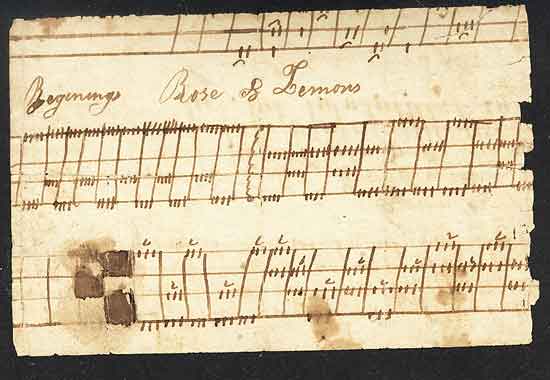 Begenings Rose & Lemons